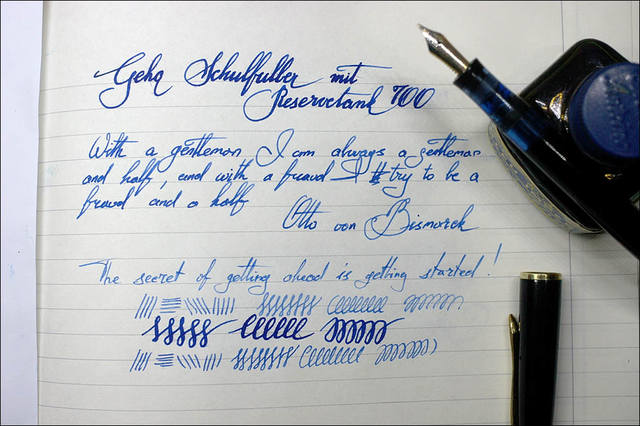 Geha Schulfüller mit
Reservetank 700
With a gentleman I am always a gentleman
and half, and with a fraud I try to be a
fraud and a half
Otto von Bismarck
The secret of getting ahead is getting started!